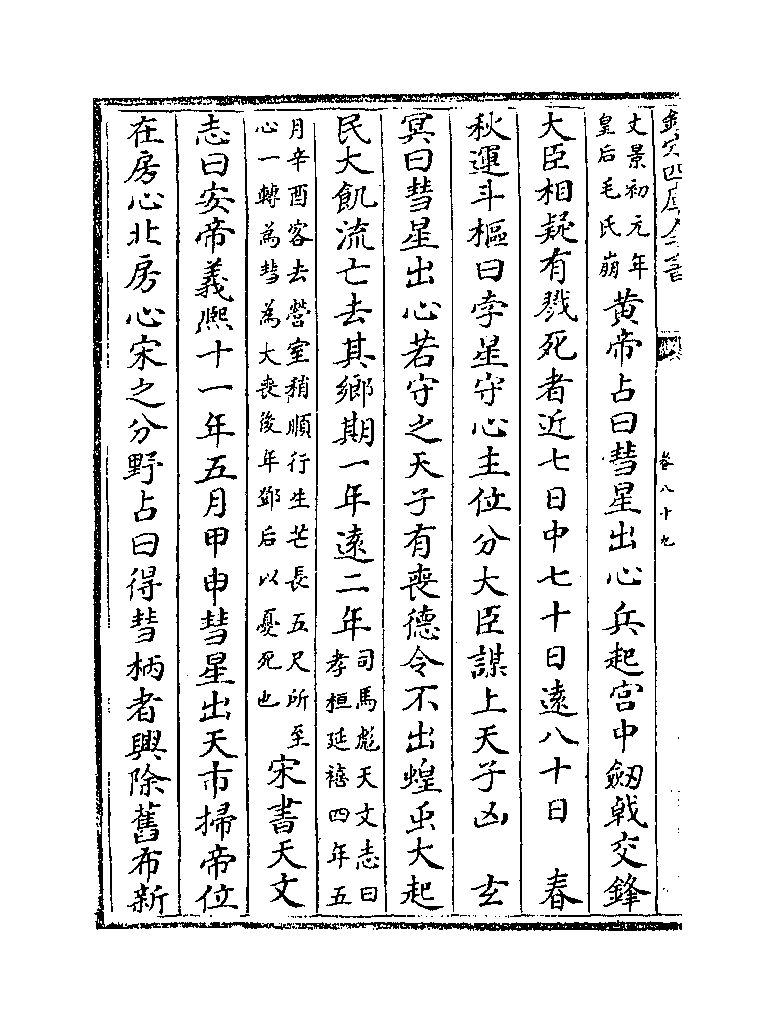 欽定四庫全書
卷八十九
丈景初元年
皇后毛氏崩
黄帝占曰彗星出心兵起宫中劒戟交鋒
大臣相疑有戮死者近七日中七十日遠八十日 春
秋運斗樞曰孛星守心主位分大臣謀上天子凶 玄
冥曰彗星出心若守之天子有喪德令不出蝗虫大起
民大飢流亡去其鄉期一年遠二年
司馬彪天文志曰
孝桓延禧四年五
月辛酉客去營室稍順行生芒長五尺所至
心一轉為彗為大喪後年鄧后以憂死也
宋書天文
志曰安帝義熙十一年五月甲申彗星出天市掃帝位
在房心北房心宋之分野占曰得彗柄者興除舊布新